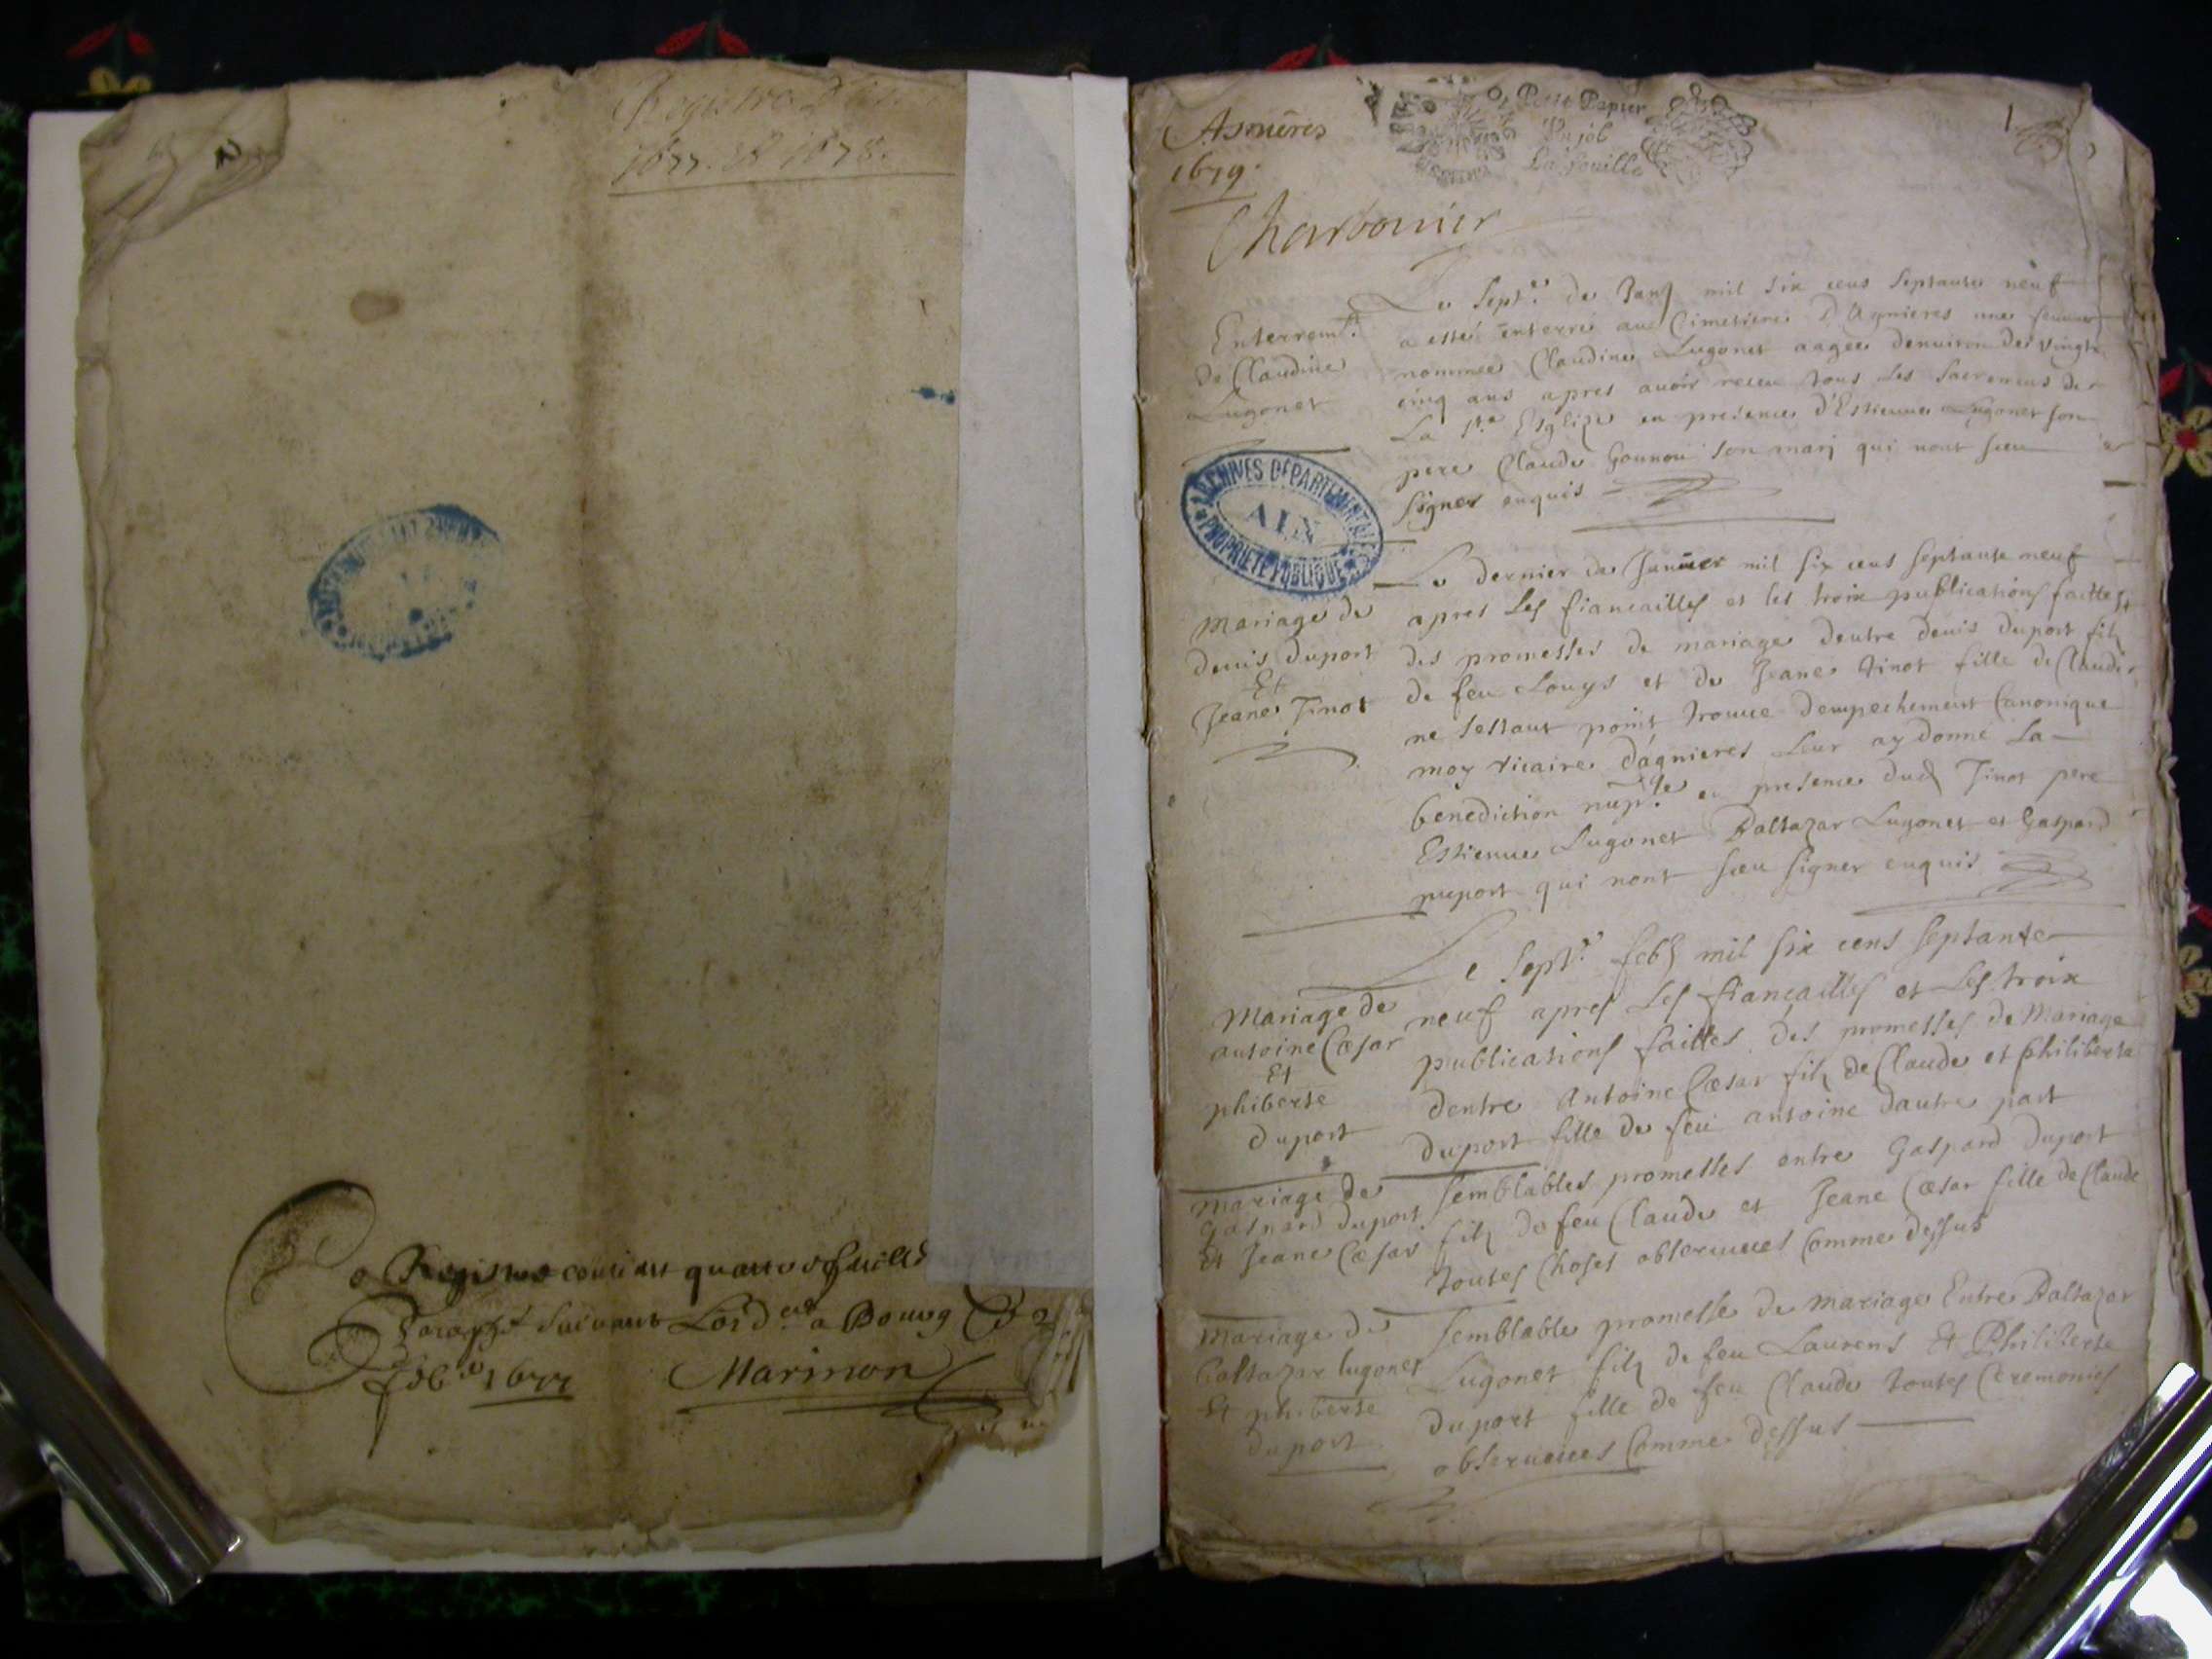 Registre
1677. & 1678.
Ce Registre contient quattre feuillets
Paraphé suivant Lord.ce a Bourg ce 2
feb.er 1677 Marinon
Asnières
1679.
Petit Papier
La feuille
1
Charbonier
Enterrem.t
De Claudine
Lugonet
Le sept.e de Janv mil six cens septante neuf
a esté enterrée au Cimetiere D'Agnieres une femme
nommée Claudine Lugonet aagée denviron de vingte
cinq ans apres avoir receu tous les sacremens de
La s.te Esglize en presence d'Estienne Lugonet son
pere Claude Gounon son marj qui nont sceu
signer enquis
ARCHIVES DÉPARTEMENTALES
AIN
PROPRIÉTÉ PUBLIQUE
Mariage de
denis duport
Et
Jeane Tinot
Le dernier de Janvier mil six cens septante neuf
apres Les fiancailles et les troix publications faittes
des promesses de mariage dentre denis duport filz
de feu Louys et de Jeane tinot fille de Claude
ne sestant point trouue dempechement Canonique
moy vicaire dagnieres Leur ay donné La
benediction nup.le en presence dud Tinot pere
Estienne Lugonet Baltazar Lugonet et Gaspard
duport qui nont sceu signer enquis
Mariage de
antoine Cæsar
Et
phiberte
duport
Le sept.e feb mil six cens septante
neuf apres Les fiançailles et Les troix
publications faittes des promesses de Mariage
dentre Antoine Cæsar filz de Claude et Philiberte
duport fille de feu antoine dautre part
mariage de
Gaspard duport
Et Jeane Cæsar
semblables promesses entre Gaspard duport
filz de feu Claude et Jeane Cæsar fille de Claude
toutes Choses obseruuees Comme dessus
Mariage de
Baltazar lugonet
Et phiberte
duport
semblable promesse de mariage Entre Baltazar
Lugonet filz de feu Laurens Et Philiberte
duport fille de feu Claude toutes Ceremonies
obseruuees Comme dessus